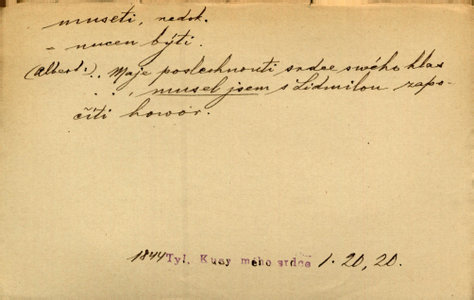 museti, nedok.
- nucen býti.
(Albert:).. Maje poslechnouti srdce swého hlas
. . , musel jsem s Lidmilou zapo-
číti howor.
1844 Tyl, Kusy mého srdce 1. 20, 20.